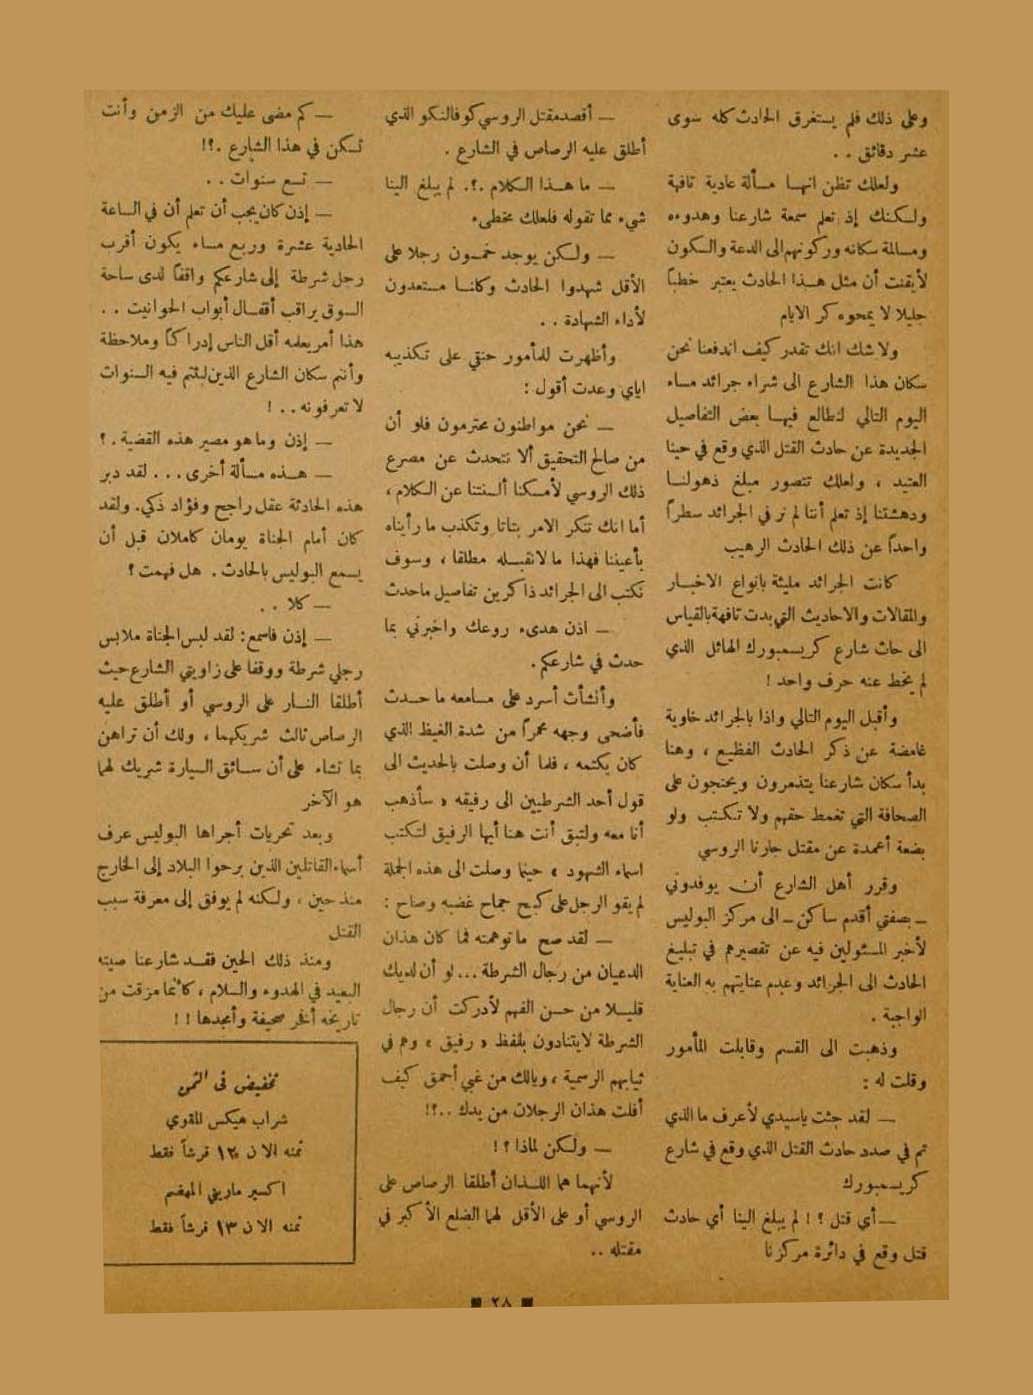 وعلى ذلك فلم يستغرق الحادث كله سوى
عشر دقائق . .
ولعلك تظن انها مسألة عادية تافهة
ولكنك إذ تعلم سمعة شارعنا وهدوءه
ومسالمة سكانه وركونهم الى الدعة والسكون
لأيقنت أن مثل هذا الحادث يعتبر خطباً
جليلا لا يمحوه كر الايام
ولا شك انك تقدر كيف اندفعنا نحن
سكان هذا الشارع الى شراء جرائد مساء
اليوم التالي لنطالع فيها بعض التفاصيل
الجديدة عن حادث القتل الذي وقع في حينا
العتيد ، ولعلك تتصور مبلغ ذهولنا
ودهشتنا إذ تعلم أننا لم نر في الجرائد سطراً
واحداً عن ذلك الحادث الرهيب
كانت الجرائد مليئة بانواع الاخبار
والمقالات والاحاديث التي بدت تافهة بالقياس
الى حاث شارع كريسمبورك الهائل الذي
لم يخط عنه حرف واحد !
وأقبل اليوم التالي واذا بالجرائد خاوية
غامضة عن ذكر الحادث الفظيع ، وهنا
بدأ سكان شارعنا يتذمرون ويحتجون على
الصحافة التي تغمط حقهم ولا تكتب ولو
بضعة أعمدة عن مقتل جارنا الروسي
وقرر أهل الشارع أن يوفدوني
ــ بصفتي أقدم ساكن ــ الى مركز البوليس
لأخبر المسئولين فيه عن تقصيرهم في تبليغ
الحادث الى الجرائد وعدم عنايتهم به العناية
الواجبة .
وذهبت الى القسم وقابلت المأمور
وقلت له :
ــ لقد جئت ياسيدي لأعرف ما الذي
تم في صدد حادث القتل الذي وقع في شارع
كريسمبورك
ــ أي قتل ؟ ! لم يبلغ الينا أي حادث
قتل وقع في دائرة مركزنا
ــ أقصد مقتل الروسي كوفالنكو الذي
أطلق عليه الرصاص في الشارع .
ــ ما هذا الكلام .؟. لم يبلغ الينا
شيء مما تقوله فلعلك مخطىء
ــ ولكن يوجد خمسون رجلا على
الأقل شهدوا الحادث وكلنا مستعدون
لأداء الشهادة . .
وأظهرت للمأمور حنقي على تكذيبه
اياي وعدت أقول :
ــ نحن مواطنون محترمون فلو أن
من صالح التحقيق ألا نتحدث عن مصرع
ذلك الروسي لأمسكنا ألسنتنا عن الكلام ،
أما انك تنكر الامر بتاتا وتكذب ما رأيناه
بأعيننا فهذا ما لانقبله مطلقا ، وسوف
نكتب الى الجرائد ذاكرين تفاصيل ماحدث
ــ اذن هدىء روعك واخبرني بما
حدث في شارعكم .
وأنشأت أسرد على مسامعه ما حدث
فأضحى وجهه محمراً من شدة الغيظ الذي
كان يكتمه ، فلما أن وصلت بالحديث الى
قول أحد الشرطيين الى رفيقه « سأذهب
أنا معه ولتبق أنت هنا أيها الرفيق لتكتب
اسماء الشهود » حينما وصلت الى هذه الجملة
لم يقو الرجل على كبح جماح غضبه وصاح :
ــ لقد صح ما توهمته فما كان هذان
الدعيان من رجال الشرطة ... لو أن لديك
قليلا من حسن الفهم لأدركت أن رجال
الشرطة لايتنادون بلفظ « رفيق » وهم في
ثيابهم الرسمية ، ويالك من غبي أحمق كيف
أفلت هذان الرجلان من يدك ..؟!
ــ ولكن لماذا ؟ !
لأنهما هما اللذان أطلقا الرصاص على
الروسي أو على الأقل لهما الضلع الأكبر في
مقتله ..
ــ كم مضى عليك من الزمن وأنت
تسكن في هذا الشارع .؟!
ــ تسع سنوات . .
ــ إذن كان يجب أن تعلم أن في الساعة
الحادية عشرة وربع مساء يكون أقرب
رجل شرطة إلى شارعكم واقفاً لدى ساحة
السوق يراقب أقفال أبواب الحوانيت . .
هذا أمر يعلمه أقل الناس إدراكاً وملاحظة
وأنتم سكان الشارع الذين لبثتم فيه السنوات
لا تعرفونه . . !
ــ إذن وما هو مصير هذه القضية . ؟
ــ هذه مسألة أخرى ... لقد دبر
هذه الحادثة عقل راجح وفؤاد ذكي . ولقد
كان أمام الجناة يومان كاملان قبل أن
يسمع البوليس بالحادث . هل فهمت ؟
ــ كلا . .
ــ إذن فاسمع : لقد لبس الجناة ملابس
رجلي شرطة ووقفا على زاويتي الشارع حيث
أطلقا النار على الروسي أو أطلق عليه
الرصاص ثالث شريكهما ، ولك أن تراهن
بما تشاء على أن سائق السيارة شريك لهما
هو الآخر
وبعد تحريات أجراها البوليس عرف
أسماء القاتلين الذين برحوا البلاد إلى الخارج
منذ حين ، ولكنه لم يوفق إلى معرفة سبب
القتل
ومنذ ذلك الحين فقد شارعنا صيته
البعيد في الهدوء والسلام ، كأنما مزقت من
تاريخه أفخر صحيفة وأمجدها ! !
تخفيض في الثمن
شراب هيكس المقوي
ثمنه الان ١٢ قرشاً فقط
اكسير ماريني المهضم
ثمنه الان ١٣ قرشاً فقط
■ ٢٨ ■